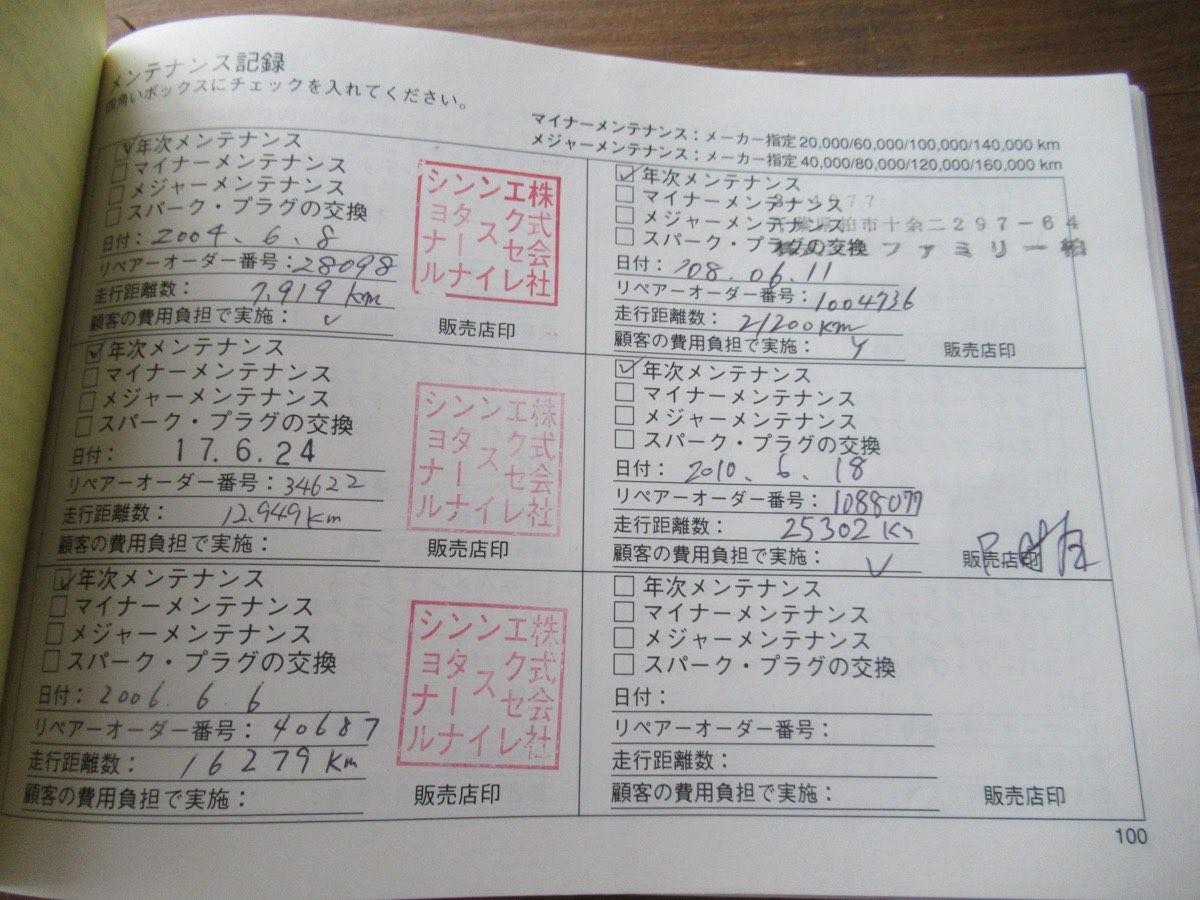 メンテナンス記録
四角いボックスにチェックを入れてください。
マイナーメンテナンス：メーカー指定20,000/60,000/100,000/140,000 km
メジャーメンテナンス：メーカー指定40,000/80,000/120,000/160,000 km
年次メンテナンス
マイナーメンテナンス
メジャーメンテナンス
スパーク・プラグの交換
日付：2004.6.8
リペアーオーダー番号：28098
走行距離数：7,919 km
顧客の費用負担で実施：✓
販売店印
株式会社
エクセレ
ンスイ
ンターナ
ショナル
年次メンテナンス
マイナーメンテナンス
メジャーメンテナンス
スパーク・プラグの交換
日付：17.6.24
リペアーオーダー番号：34622
走行距離数：12,949 km
顧客の費用負担で実施：
販売店印
株式会社
エクセレ
ンスイ
ンターナ
ショナル
年次メンテナンス
マイナーメンテナンス
メジャーメンテナンス
スパーク・プラグの交換
日付：2006.6.6
リペアーオーダー番号：40687
走行距離数：16279 Km
顧客の費用負担で実施：
販売店印
株式会社
エクセレ
ンスイ
ンターナ
ショナル
年次メンテナンス
マイナーメンテナンス
メジャーメンテナンス
スパーク・プラグの交換
県柏市十余二297-64
ファミリー柏
日付：'08.06.11
リペアーオーダー番号：1004736
走行距離数：21200km
顧客の費用負担で実施：✓
販売店印
年次メンテナンス
マイナーメンテナンス
メジャーメンテナンス
スパーク・プラグの交換
日付：2010.6.18
リペアーオーダー番号：1088077
走行距離数：25302 Km
顧客の費用負担で実施：✓
販売店印
年次メンテナンス
マイナーメンテナンス
メジャーメンテナンス
スパーク・プラグの交換
日付：
リペアーオーダー番号：
走行距離数：
顧客の費用負担で実施：
販売店印
100